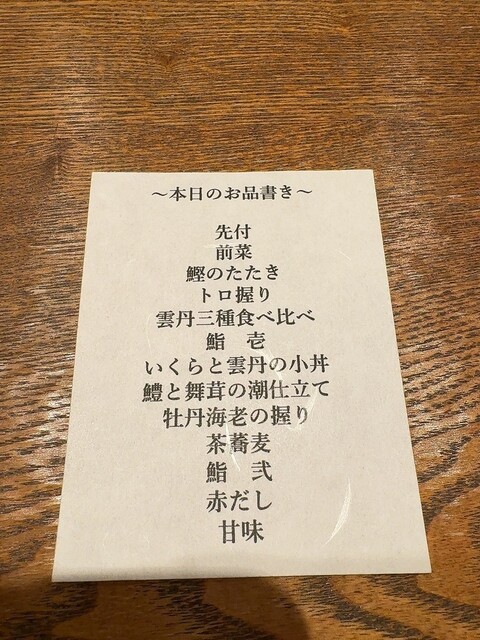 ～本日のお品書き～
先付
前菜
鰹のたたき
トロ握り
雲丹三種食べ比べ
鮨　壱
いくらと雲丹の小丼
鱧と舞茸の潮仕立て
牡丹海老の握り
茶蕎麦
鮨　弐
赤だし
甘味